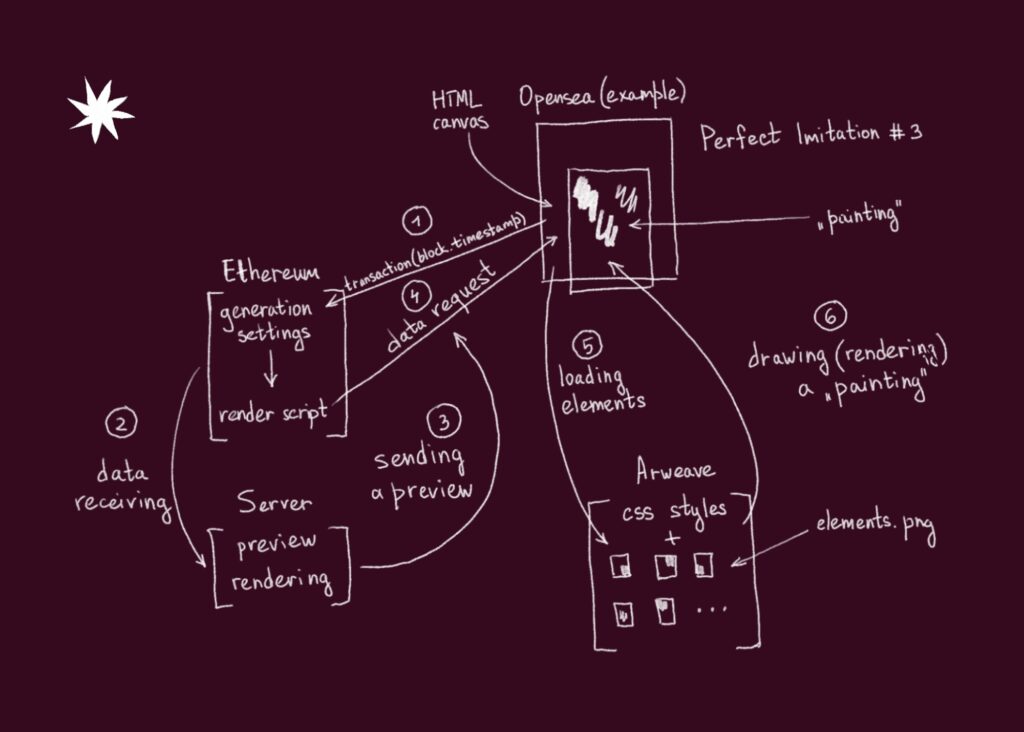 HTML
canvas
Opensea (example)
Perfect Imitation #3
„painting"
1
transaction(block.timestamp)
Ethereum
generation
settings
render script
4
data request
2
data
receiving
3
sending
a preview
Server
preview
rendering
5
loading
elements
6
drawing (rendering)
a „painting"
Arweave
css styles
+
elements.png
...